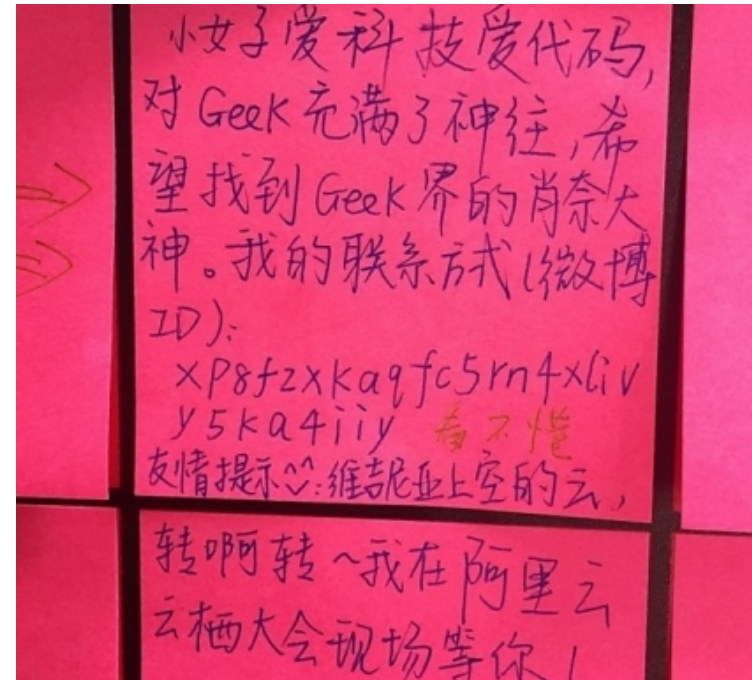 小女子爱科技爱代码,
对Geek充满了神往,希
望找到Geek界的肖奈大
神。我的联系方式(微博
ID):
xp8fzxkaqfc5rn4xliv
y5ka4iiy 看不懂
友情提示^^:维吉尼亚上空的云,
转啊转~我在阿里云
云栖大会现场等你!